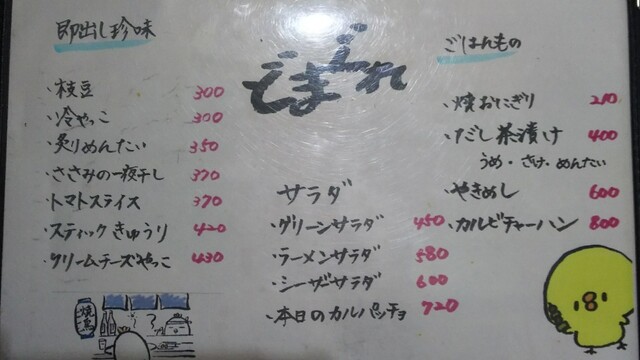 即出し珍味
・枝豆 300
・冷やっこ 300
・炙りめんたい 350
・ささみの一夜干し 370
・トマトスライス 370
・スティックきゅうり 420
・クリームチーズやっこ 430
焼鳥
サラダ
・グリーンサラダ 450
・ラーメンサラダ 580
・シーザサラダ 600
・本日のカルパッチョ 720
ごはんもの
・焼おにぎり 210
・だし茶漬け 400
うめ・さけ・めんたい
・やきめし 600
・カルビチャーハン 800